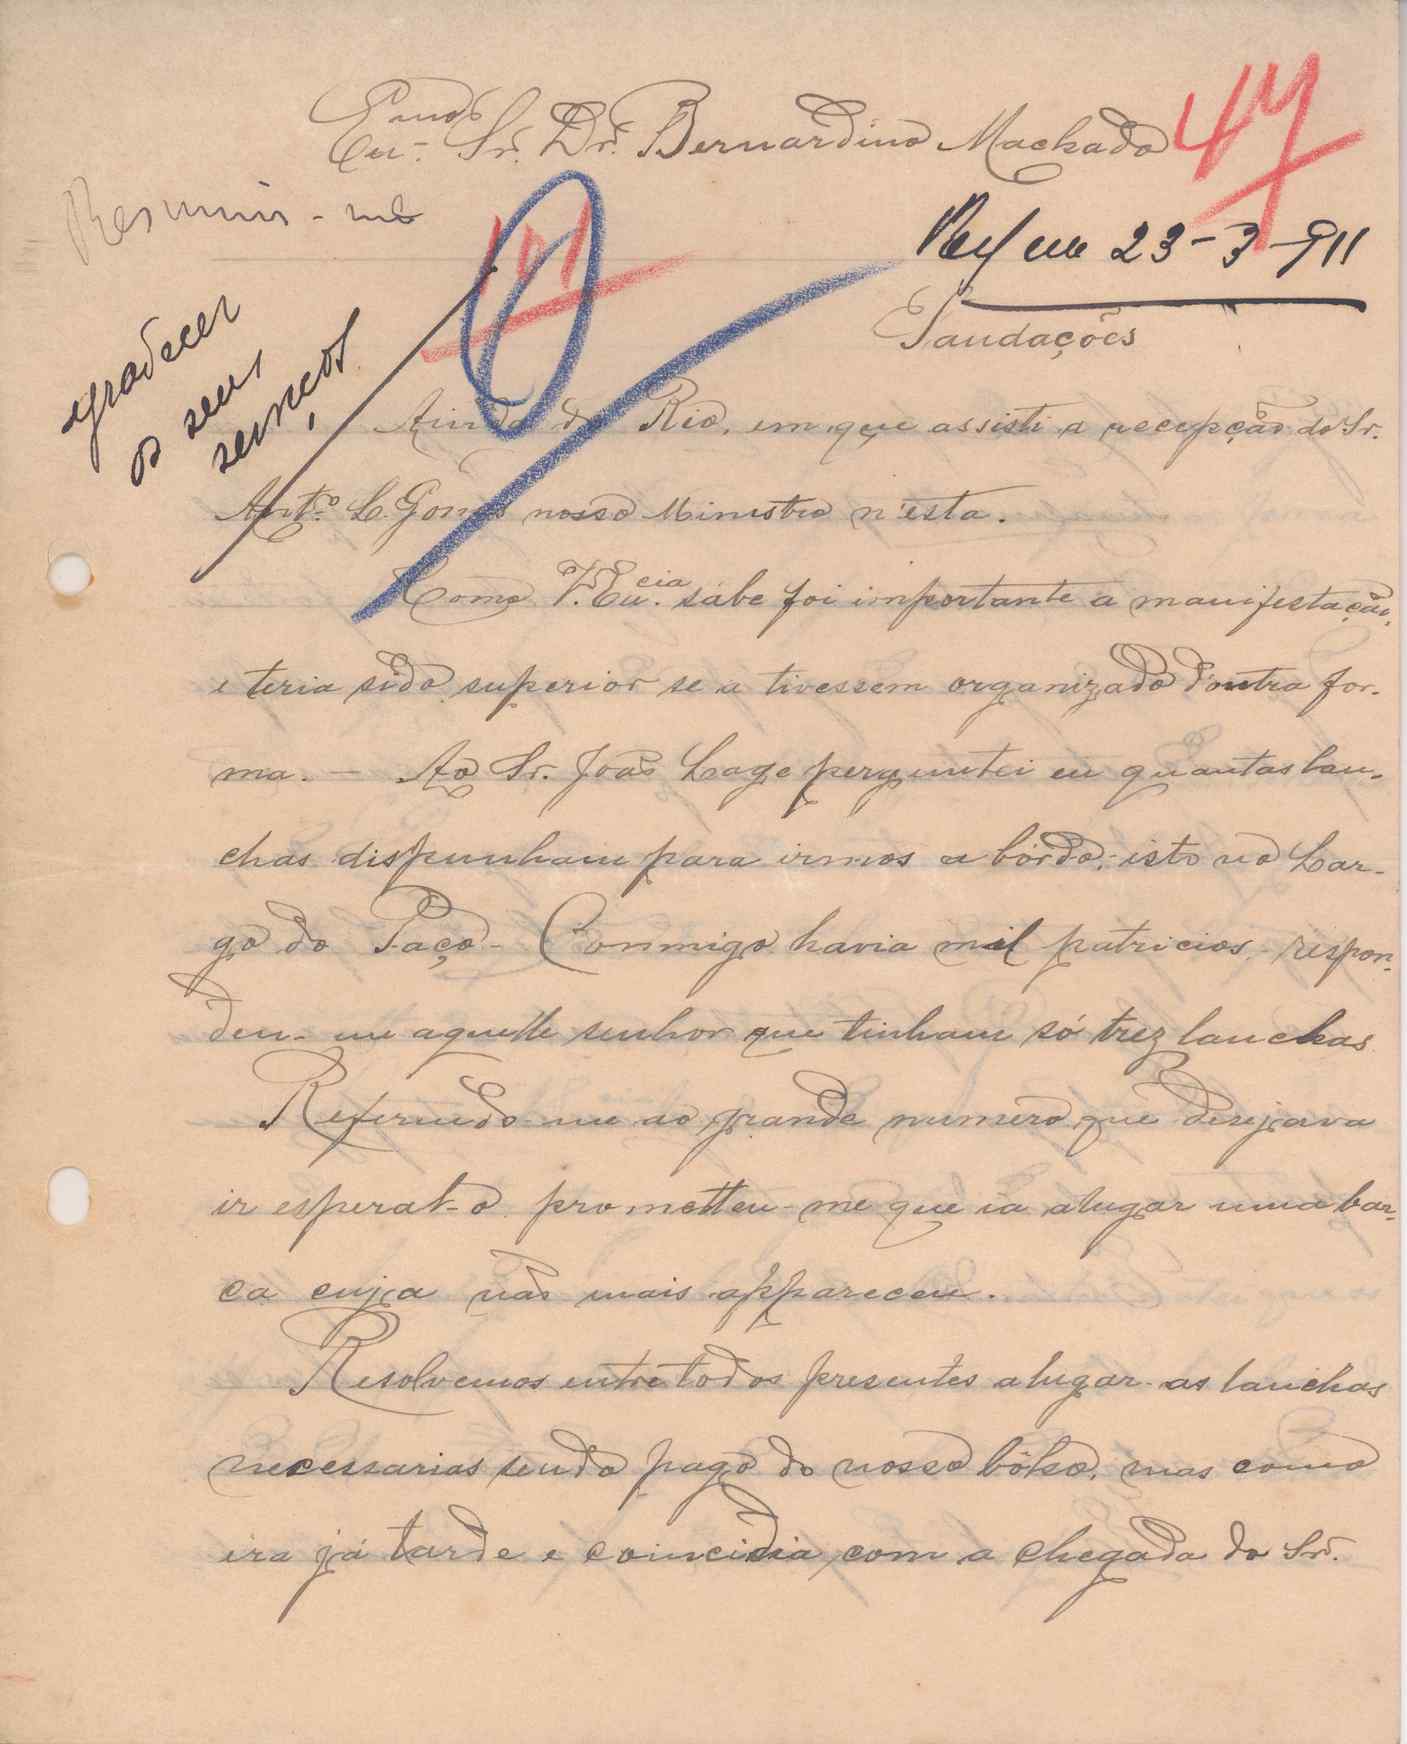 Exmo Sr. Dr. Bernardino Machado
47
Resumir-me
Resp em 23-3-911
Saudações
agradecer
os seus
serviços
Ainda do Rio, em que assisti a recepção do Sr.
Antº. L. Gomes nosso Ministro n'esta.
Como V. Excia. sabe foi importante a manifestação,
e teria sido superior se a tivessem organizado d'outra for-
ma. — Ao Sr. João Lage perguntei eu quantas lan-
chas dispunham para irmos a bórdo, isto no Lar-
go do Paço - Conmigo havia mil patricios, respon-
deu-me aquelle senhor que tinham só trez lanchas
Referindo-me ao grande numero que desejava
ir esperal-o prometteu-me que ia alugar uma bar-
ca cuja não mais appareceu.
Resolvemos entre todos presentes alugar as lanchas
necessarias sendo pago do nosso bôlso, mas como
era já tarde e coincidia com a chegada do Sr.